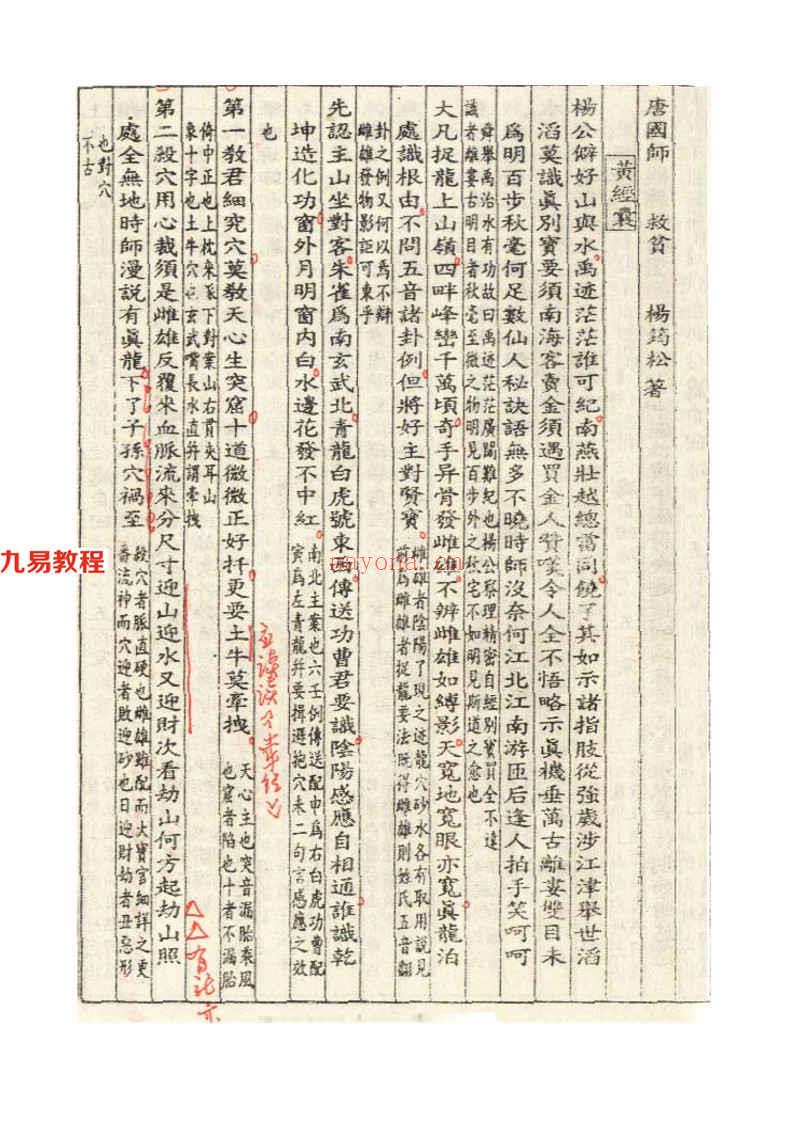 唐國師 救貧 楊筠松著
黃經囊
楊公僻好山與水禹迹茫茫誰可紀南燕壯越總當同饒了其如示諸指肢從強歲涉江津舉世滔
滔莫識眞別寶要須南海客賣金須遇買金人賛嘆令人全不悟略示眞機垂萬古離婁雙目未
爲明百步秋毫何足數仙人秘訣語無多不曉時師沒奈何江北江南游匝后逢人拍手笑呵呵
舜舉禹治水有功故曰禹迹茫茫廣闊難紀也楊公察理精密自經別寶買全不遠
識者離婁古明目者秋毫至微之物明見百步外之秋宅不如明見斯道之愈也
大凡捉龍上山嶺四畔峰巒千萬頃奇手异骨發雌雄不辨雌雄如縛影天寬地寬眼亦寬眞龍泊
處識根由不問五音諸卦例但將好主對賢賓
雌雄者陰陽了現之迹龍穴砂水各有取用說見
前爲雌雄者捉龍要法既得雌雄則姓氏五音翻
卦之例又何以焉不辯
雌雄發物影詎可東乎
先認主山坐對客朱雀爲南玄武北青龍白虎號東西傳送功曹君要識陰陽感應自相通誰識乾
坤造化功窗外月明窗内白水邊花發不中紅
南北主業也六壬例傳送配申爲右白虎功曹配
寅爲左青龍并要揖遜抱穴未二句言感應之效
也
第一敎君細究穴莫敎天心生突窟十道微微正好扦更要土牛莫牽拽
天心主也突音漏胎乘風
也窟者陷也十者不漏胎
倚中正也上枕來下對業山右貫夾耳山
象十字也土牛穴也玄武嘴長水直并謂牽拽
第二殺穴用心裁須是雌雄反覆來血脈流來分尺寸迎山迎水又迎財次看劫山何方起劫山照
處全無地時師漫説有眞龍下了子孫穴禍至
殺穴者脈直硬也雌雄難配而大寶官細詳之更
番流神而穴迎者敗迎砂也日迎財劫者丑惡形
也對穴
不古
九易教程